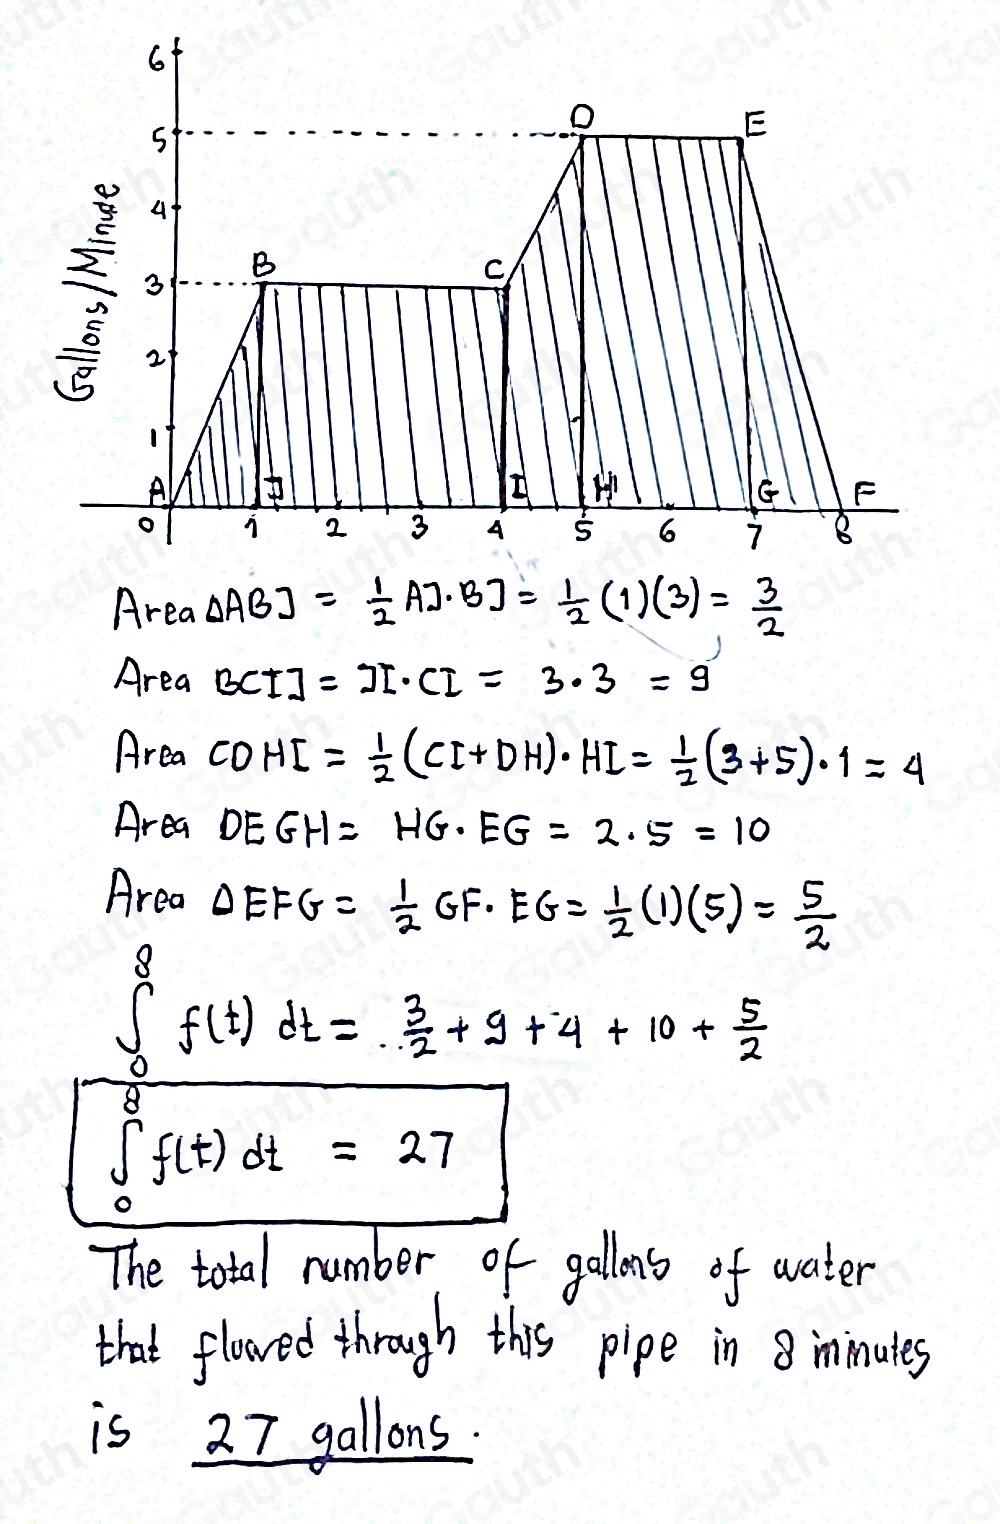 6
D
E
5
4
Gallons/Minute
B
C
3
2
1
A
J
I
H
G
F
0
1
2
3
4
5
6
7
8
Area ΔABJ = 1/2 AJ·BJ = 1/2 (1)(3) = 3/2
Area BCIJ = JI·CI = 3·3 = 9
Area CDHI = 1/2 (CI+DH)·HI = 1/2 (3+5)·1 = 4
Area DEGH = HG·EG = 2·5 = 10
Area ΔEFG = 1/2 GF·EG = 1/2 (1)(5) = 5/2
∫₀⁸ f(t) dt = 3/2 + 9 + 4 + 10 + 5/2
∫₀⁸ f(t) dt = 27
The total number of gallons of water
that flowed through this pipe in 8 minutes
is 27 gallons.
Gauth